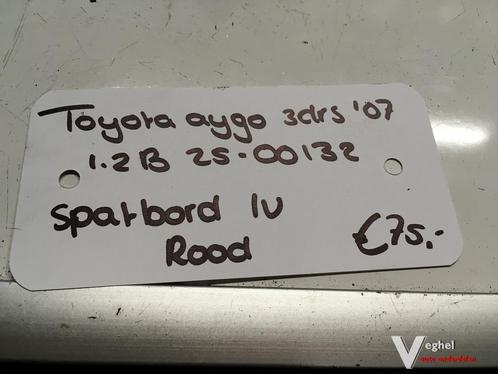 Toyota aygo 3drs '07
1.2B 25-00132
spatbord lv
Rood
€75,-
Veghel